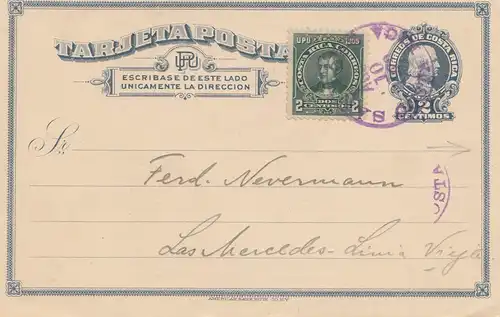 TARJETA POSTA
UPU
ESCRIBASE DE ESTE LADO
UNICAMENTE LA DIRECCION
UPU 1905
COSTA RICA CORREOS
2 DOS CENTIMOS 2
10
CORREOS DE COSTA RICA
2
CENTIMOS
Sr.
OSTA
Ferd. Nevermann
Las Mercedes-Linia Vieja